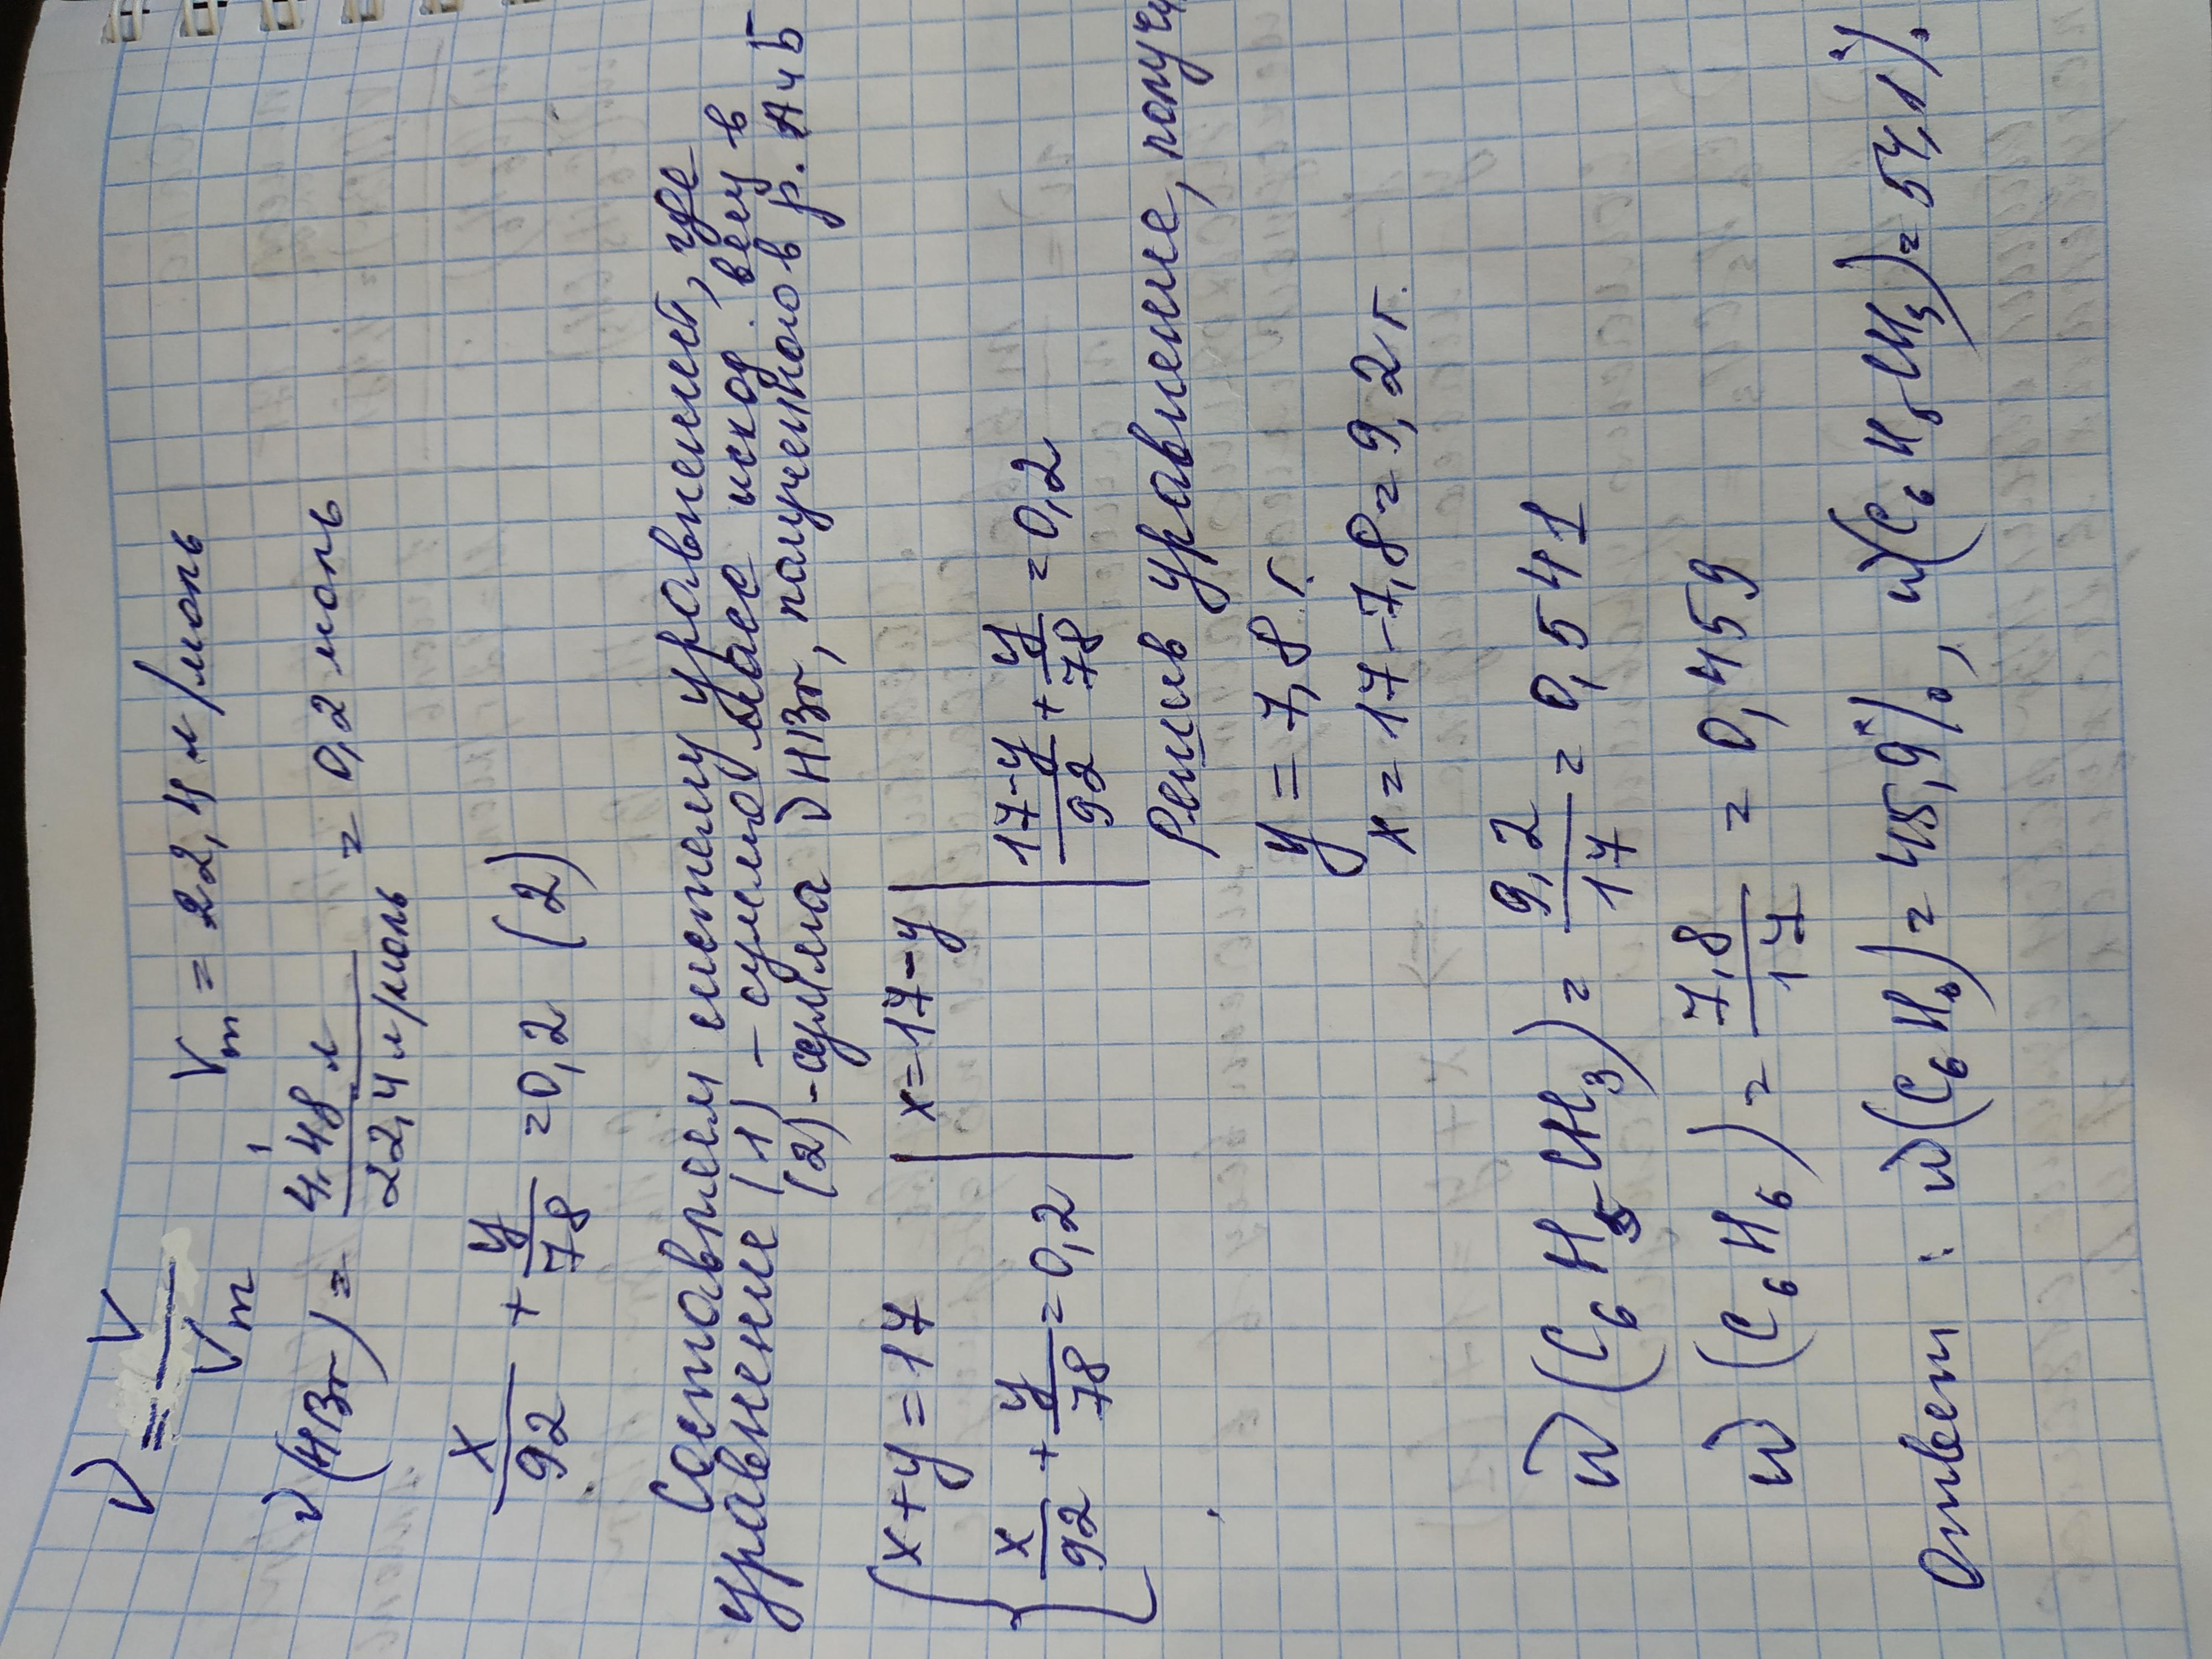 ν = V/Vm   Vm = 22,4 л/моль
ν(HBr) = 4,48 л / 22,4 л/моль = 0,2 моль
x/92 + y/78 = 0,2 (2)
Составляем систему уравнений, где
уравнение (1) – сумма масс исход. вещ в
(2) – сумма ν HBr, полученного в р. А и Б
{ x+y=17 | x=17-y |
x/92 + y/78 = 0,2 | (17-y)/92 + y/78 = 0,2
Решив уравнение, получ
y = 7,8 г.
x = 17-7,8 = 9,2 г.
ω(C6H5CH3) = 9,2/17 = 0,541
ω(C6H6) = 7,8/17 = 0,459
Ответ: ω(C6H6) = 45,9%, ω(C6H5CH3) = 54,1%